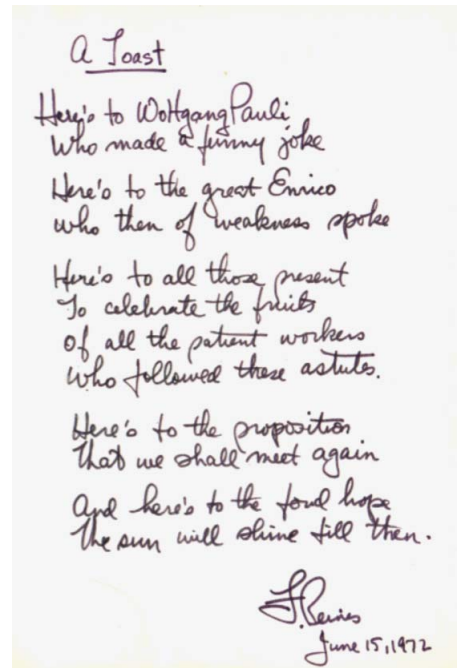 A Toast
Here's to Wolfgang Pauli
Who made a funny joke
Here's to the great Enrico
who then of weakness spoke
Here's to all those present
To celebrate the fruits
Of all the patient workers
Who followed these astutes.
Here's to the proposition
That we shall meet again
And here's to the fond hope
The sun will shine till then.
F. Reines
June 15, 1972